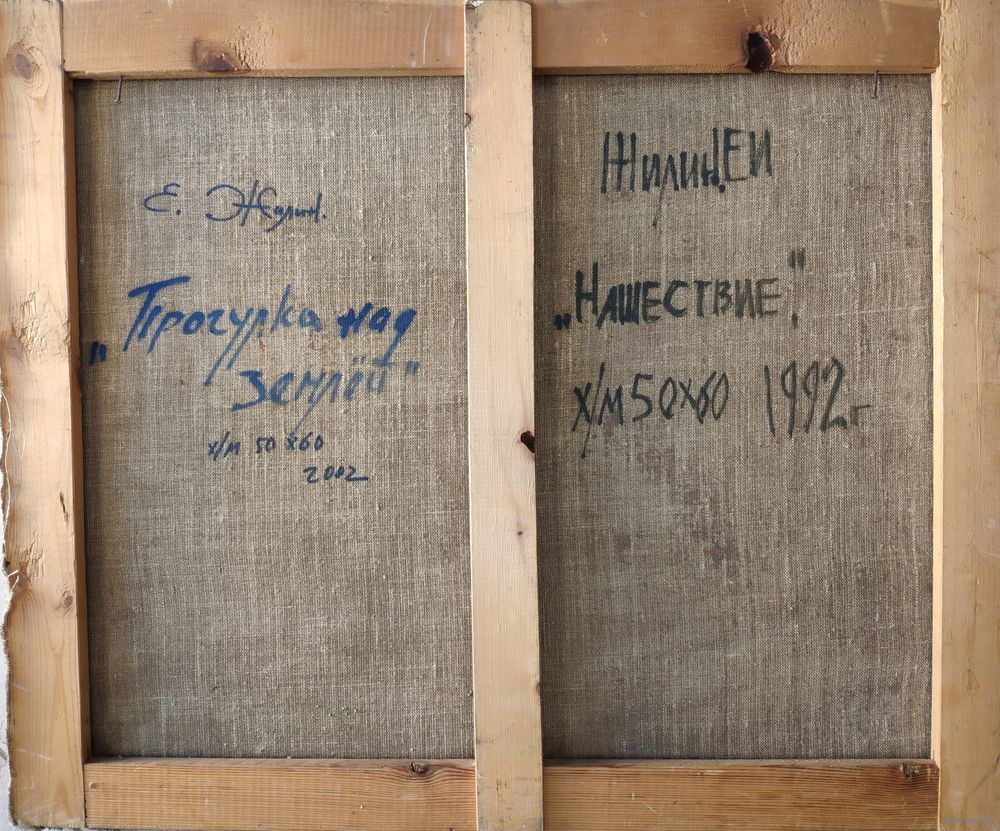 Е. Жилин.
„Прогулка над
землёй"
х/м 50х60
2002
Жилин.ЕИ
„Нашествие".
х/м 50х60 1992г